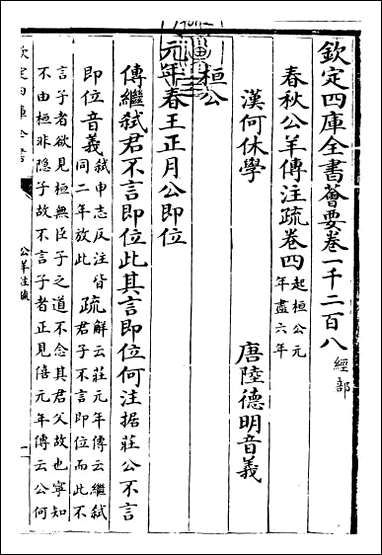 欽定四庫全書薈要卷一千二百八 經部
春秋公羊傳注疏卷四 起桓公元年盡六年
漢何休學　唐陸德明音義
桓公
元年春王正月公即位
傳繼弑君不言即位此其言即位何注据莊公不言
即位音義 弑申志反注皆同二年放此 疏 解云莊元年傳云繼弑君子不言即位而此不
言子者欲見桓無臣子之道不念其君父故也寧知
不由桓非隱子故不言子者正見僖元年傳云公何
欽定四庫全書
公羊注疏
一